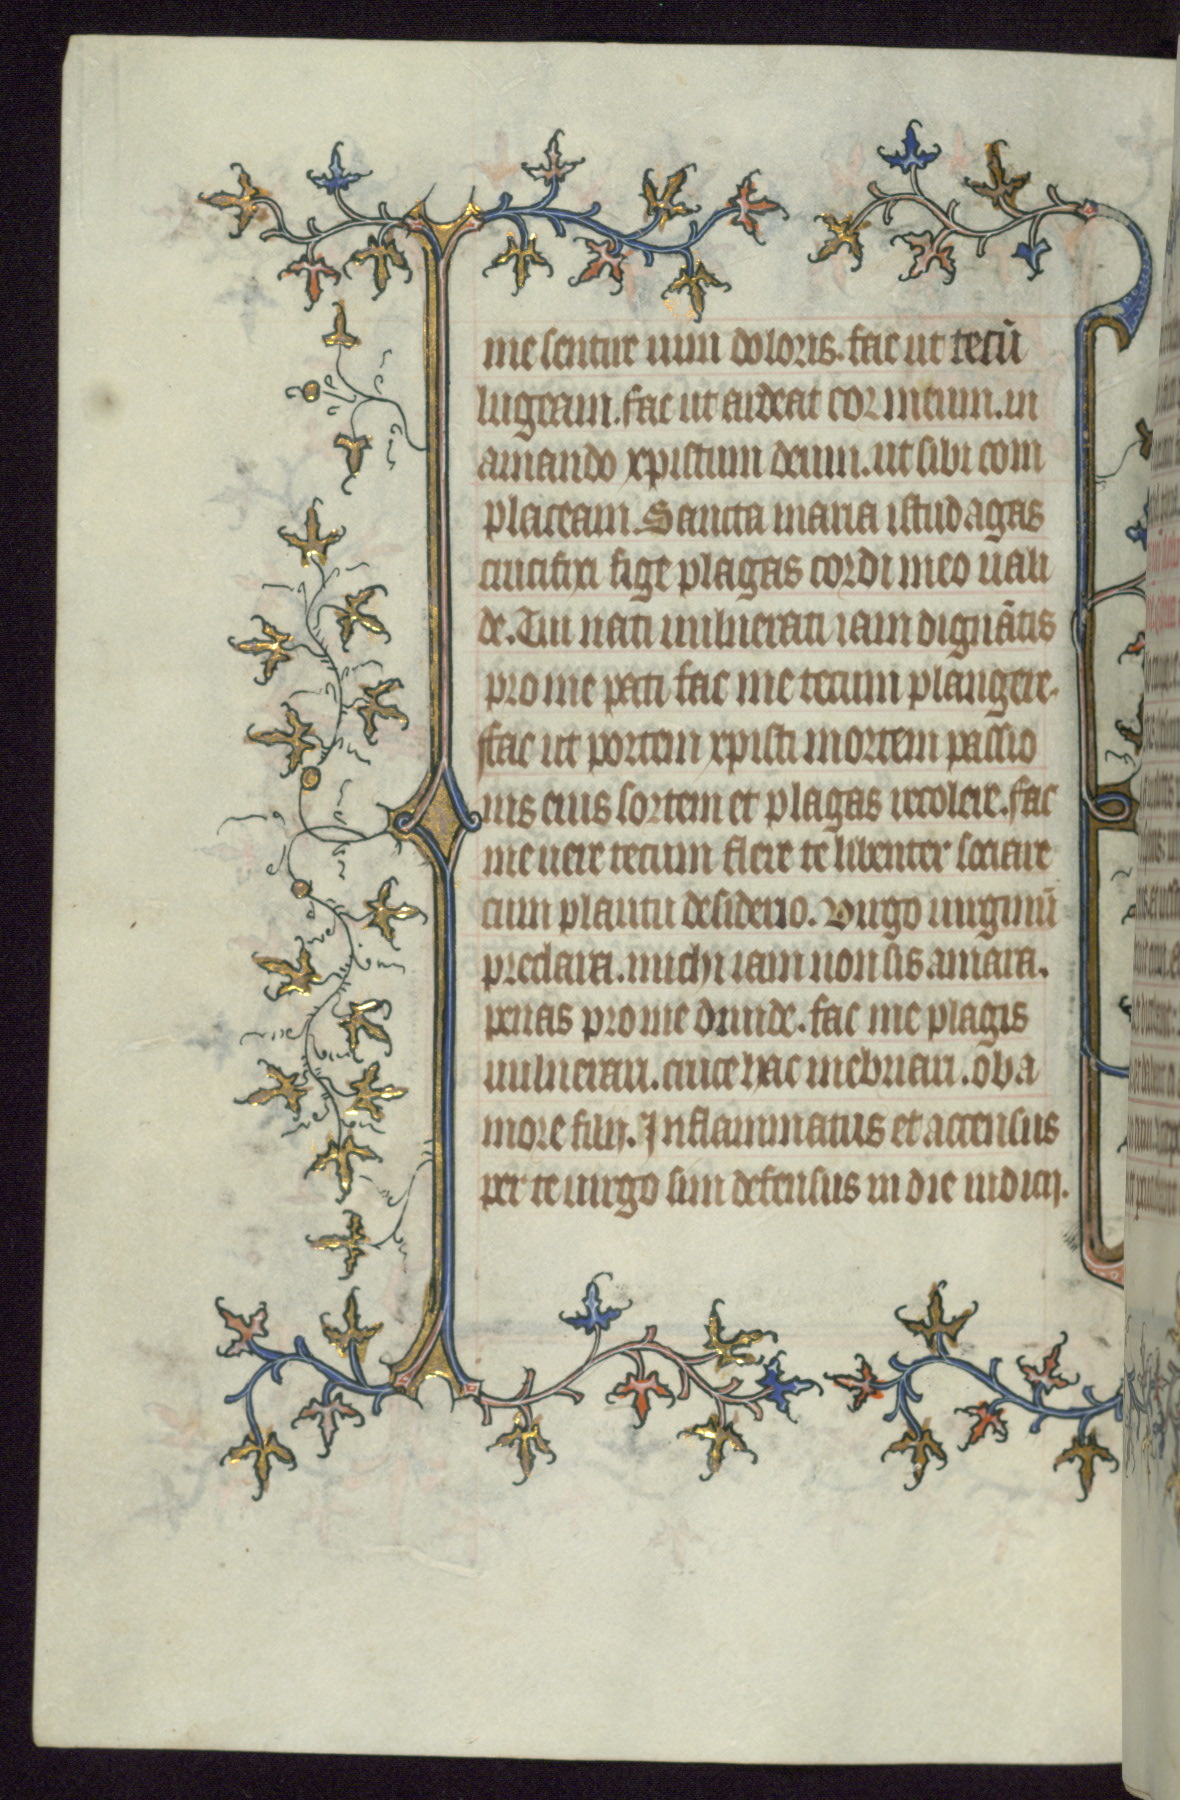 me sentire uim doloris. fac ut tecū
lugeam. fac ut ardeat cor meum. in
amando xpistum deum. ut sibi com
placeam. Sancta maria istud agas
crucifixi fige plagas cordi meo uali
de. Tui nati uulnerati iam dignātis
pro me pati fac me tecum plangere.
fac ut portem xpisti mortem passio
nis eius sortem et plagas recolere. fac
me uere tecum flere te libenter sociare
cum planctu desiderio. Uirgo uirginū
preclara. michi iam non sis amara.
penas pro me diuide. fac me plagis
uulnerari. cruce hac inebriari. ob a
more filij. Inflammatus et accensus
per te uirgo sim defensus in die iudicij.